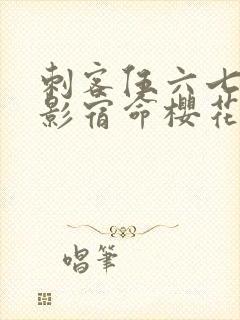 刺客伍六七
影宿命樱花
唱筆